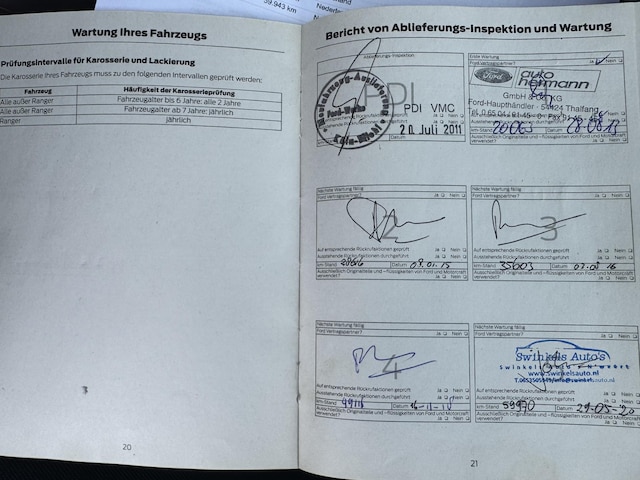 59.943 km
Wartung Ihres Fahrzeugs
Prüfungsintervalle für Karosserie und Lackierung
Die Karosserie Ihres Fahrzeugs muss zu den folgenden Intervallen geprüft werden:
Fahrzeug Häufigkeit der Karosserieprüfung
Alle außer Ranger Fahrzeugalter bis 6 Jahre: alle 2 Jahre
Alle außer Ranger Fahrzeugalter ab 7 Jahre: jährlich
Ranger jährlich
20
Bericht von Ablieferungs-Inspektion und Wartung
Ablieferungs-Inspektion
PDI
PDI VMC
Ford-Werke
Köln-Niehl
20. Juli 2011
Ja Nein
Erste Wartung
Ford Vertragspartner? Ja Nein
Ford
auto
hermann
GmbH & Co. KG
Ford-Haupthändler - 54424 Thalfang
km-Stand 20063 Datum
verwendet?
Nächste Wartung fällig
Ford Vertragspartner? Ja Nein
2
Auf entsprechende Rückrufaktionen geprüft Ja Nein
Ausstehende Rückrufaktionen durchgeführt Ja Nein
km-Stand Datum 09.01.15
Ausschließlich Originalteile und -flüssigkeiten von Ford und Motorcraft
verwendet? Ja Nein
Nächste Wartung fällig
Ford Vertragspartner? Ja Nein
3
Auf entsprechende Rückrufaktionen geprüft Ja Nein
Ausstehende Rückrufaktionen durchgeführt Ja Nein
km-Stand 35603 Datum
Ausschließlich Originalteile und -flüssigkeiten von Ford und Motorcraft
verwendet? Ja Nein
Nächste Wartung fällig
Ford Vertragspartner? Ja Nein
4
Auf entsprechende Rückrufaktionen geprüft Ja Nein
Ausstehende Rückrufaktionen durchgeführt Ja Nein
km-Stand Datum
Ausschließlich Originalteile und -flüssigkeiten von Ford und Motorcraft
verwendet? Ja Nein
Nächste Wartung fällig
Ford Vertragspartner? Ja Nein
Swinkels Auto's
www.swinkelsauto.nl
Auf entsprechende Rückrufaktionen geprüft Ja Nein
Ausstehende Rückrufaktionen durchgeführt Ja Nein
km-Stand 59970 Datum 29-05-20
Ausschließlich Originalteile und -flüssigkeiten von Ford und Motorcraft
verwendet? Ja Nein
21